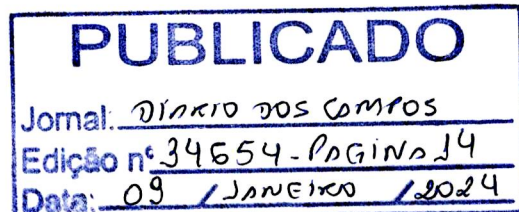 PUBLICADO
Jornal: DIARIO DOS CAMPOS
Edição nº 34654 - PAGINA 14
Data: 09 / JANEIRO / 2024